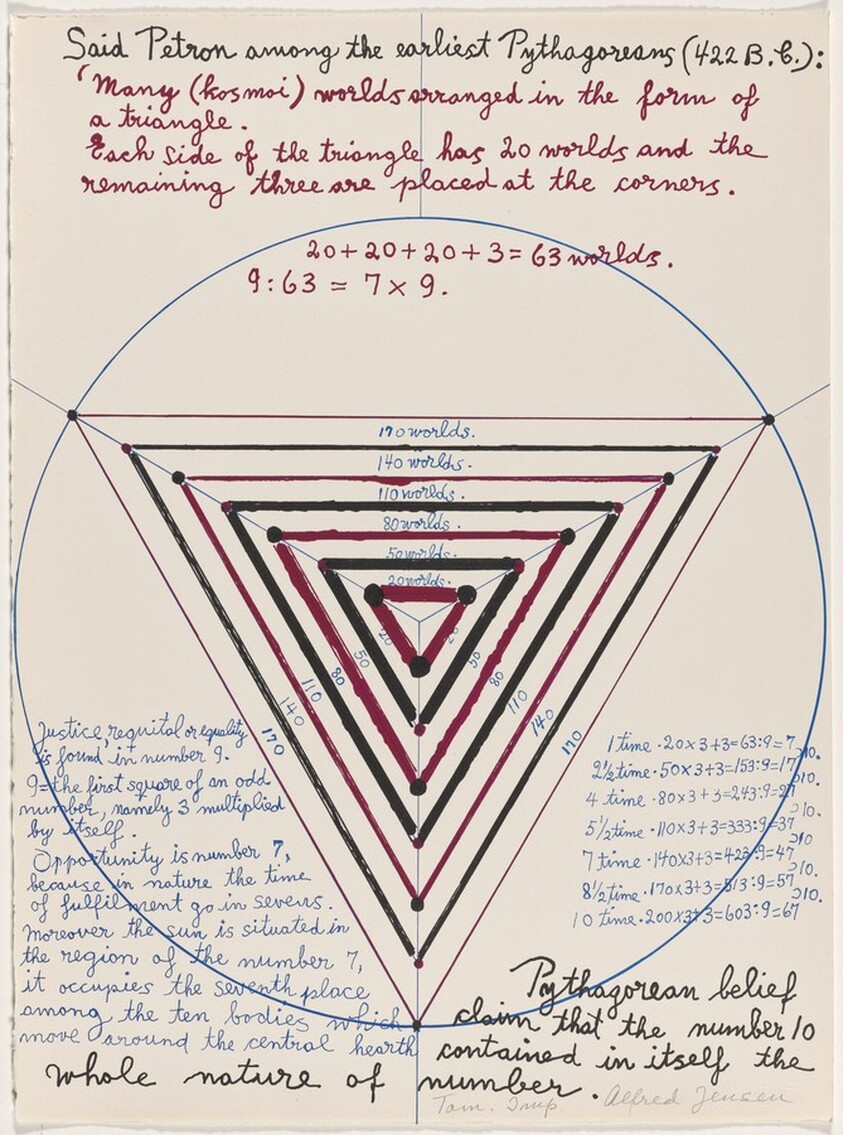 Said Petron among the earliest Pythagoreans (422 B.C.):
'Many (kosmoi) worlds arranged in the form of
a triangle.
Each side of the triangle has 20 worlds and the
remaining three are placed at the corners.
20+20+20+3=63 worlds.
9:63 = 7×9.
170 worlds.
140 worlds.
110 worlds.
80 worlds.
50 worlds.
20 worlds.
20 20
50 50
80 80
110 110
140 140
170 170
Justice, requital or equality
is found in number 9.
9=the first square of an odd
number, namely 3 multiplied
by itself.
Opportunity is number 7,
because in nature the time
of fulfilment go in sevens.
Moreover the sun is situated in
the region of the number 7,
it occupies the seventh place
among the ten bodies which
move around the central hearth
1 time·20×3+3=63:9=7
10.
2½ time·50×3+3=153:9=17
10.
4 time·80×3+3=243:9=27
10.
5½ time·110×3+3=333:9=37
10
7 time·140×3+3=423:9=47
10.
8½ time·170×3+3=513:9=57
10.
10 time·200×3+3=603:9=67
Pythagorean belief
claim that the number 10
contained in itself the
whole nature of number.
Tam. Imp. Alfred Jensen